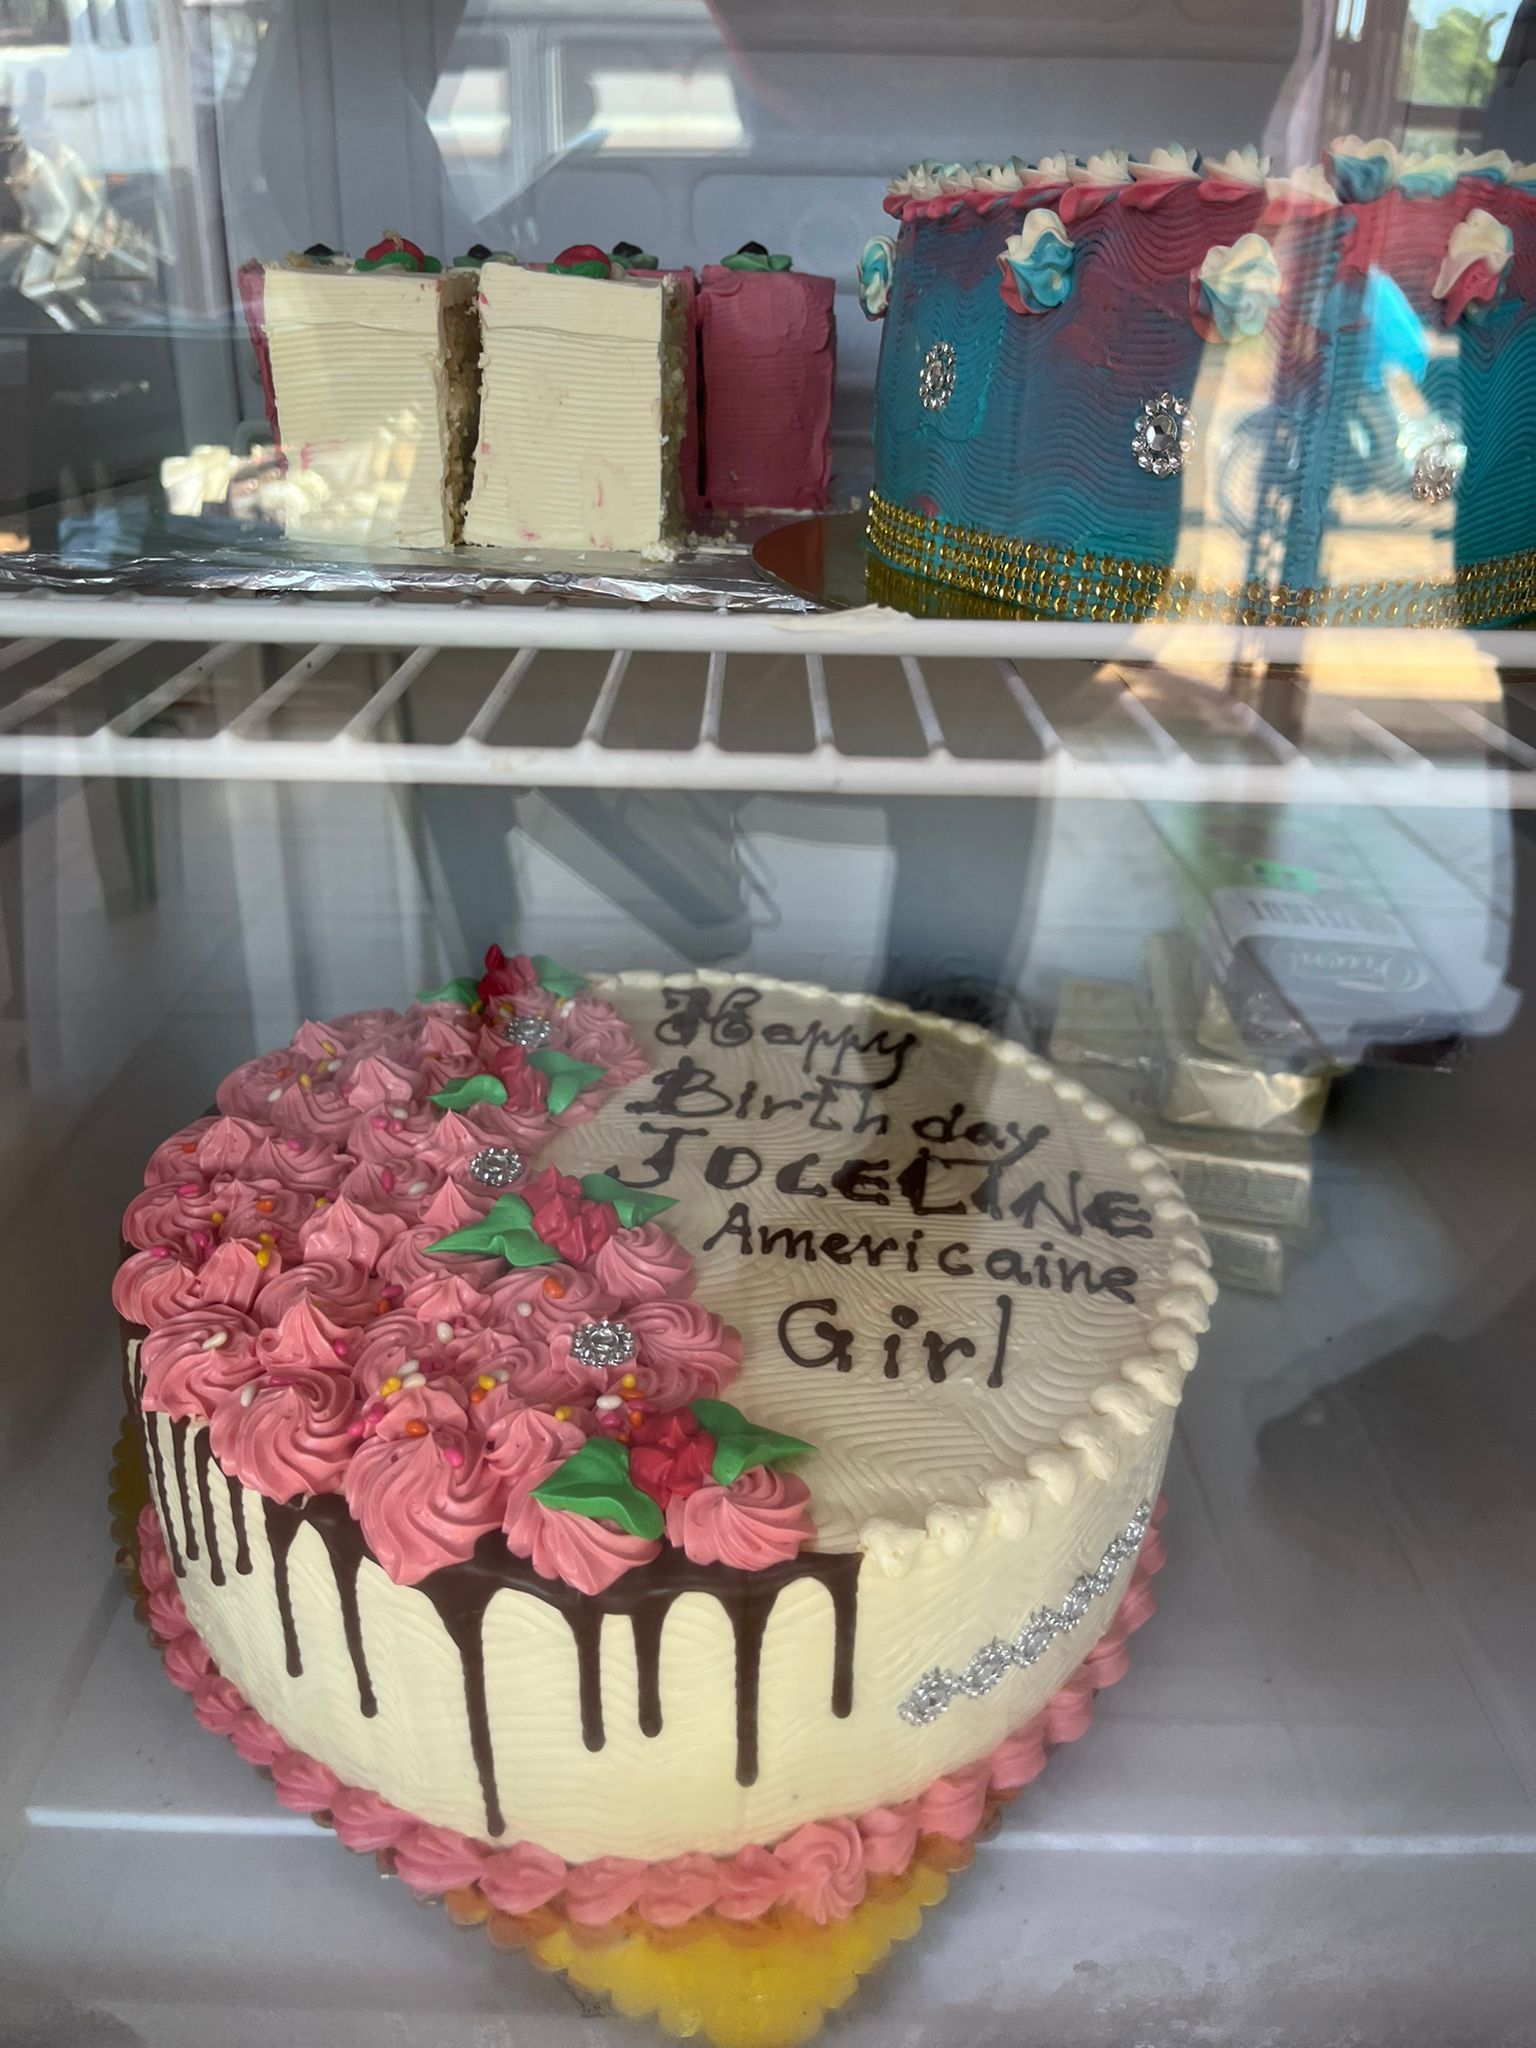 Happy
Birthday
JOCELINE
Americaine
Girl
Orient